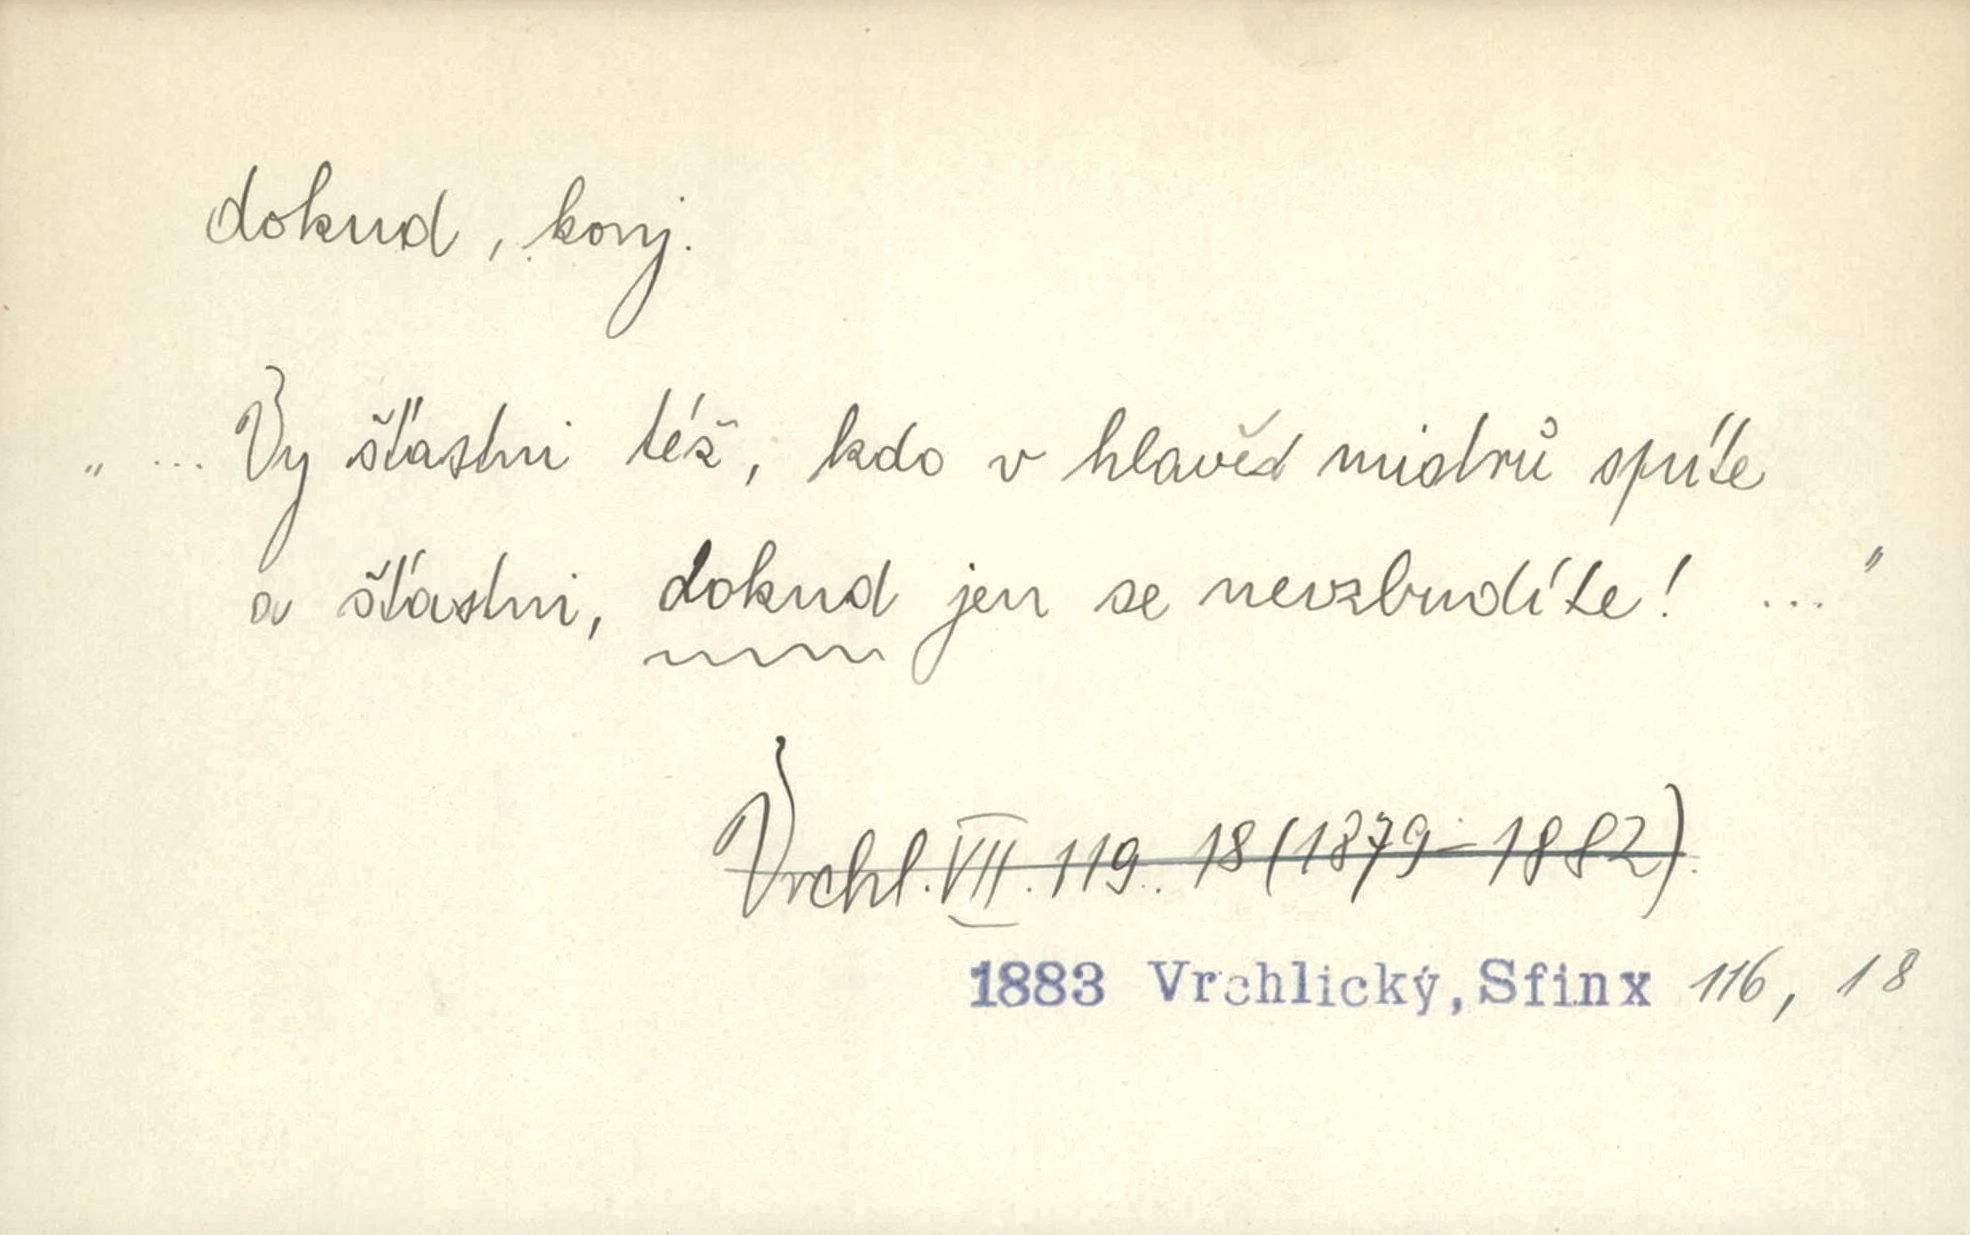 dokud, konj.
„ ... Vy šťastni též, kdo v hlavěd mistrů spíte
a šťastni, dokud jen se nevzbudíte! ... "
Vrchl. VII. 119. 18 (1879–1882).
1883 Vrchlický, Sfinx 116, 18